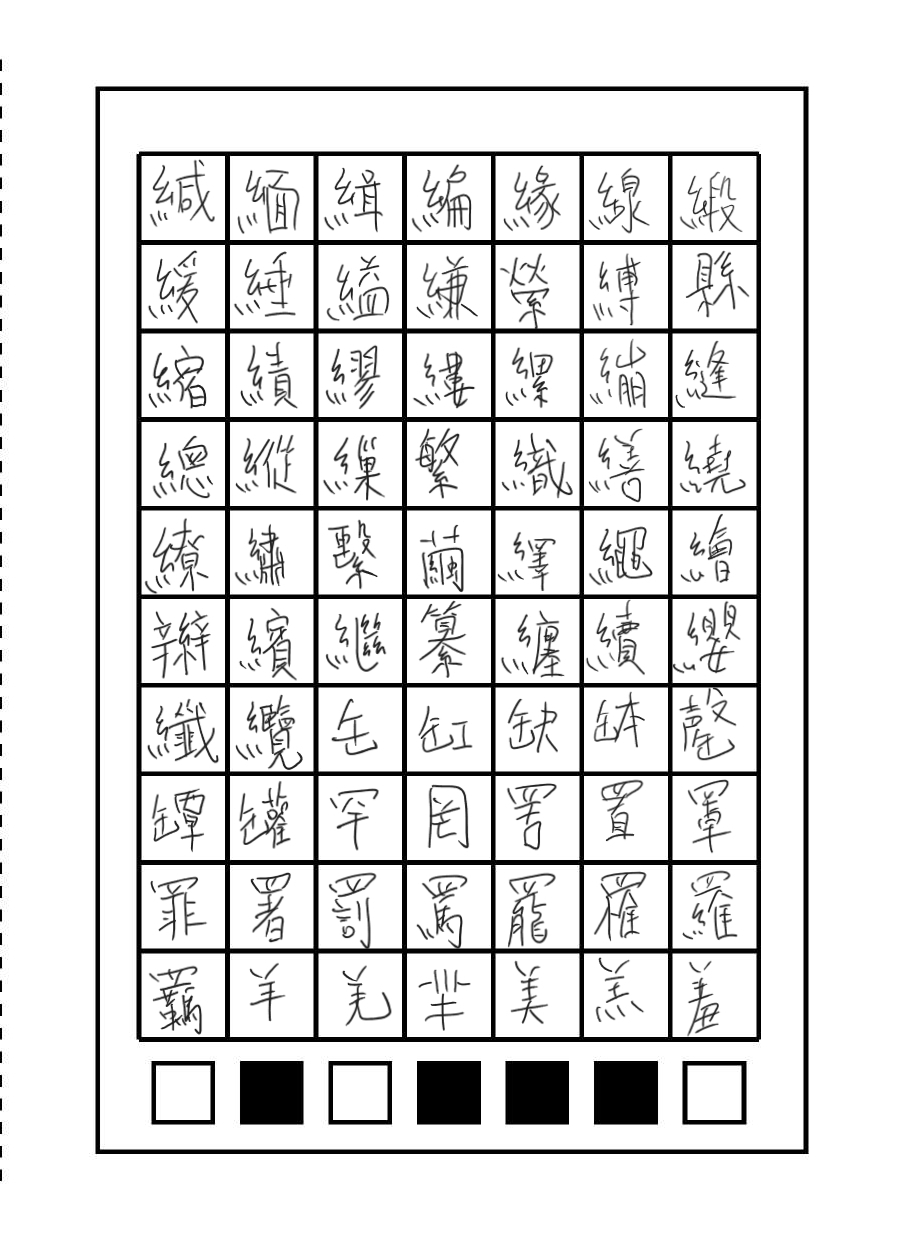 緘緬緝編緣線緞
緩緟縊縑縈縛縣
縮績繆縷縲繃縫
總縱繅繁織繕繞
繚繡繫繭繹繩繪
辮繽繼纂纏續纓
纖纜缶缸缺缽罄
罈罐罕罔罟置罩
罪署罰罵罷罹羅
羈羊羌芈美羔羞